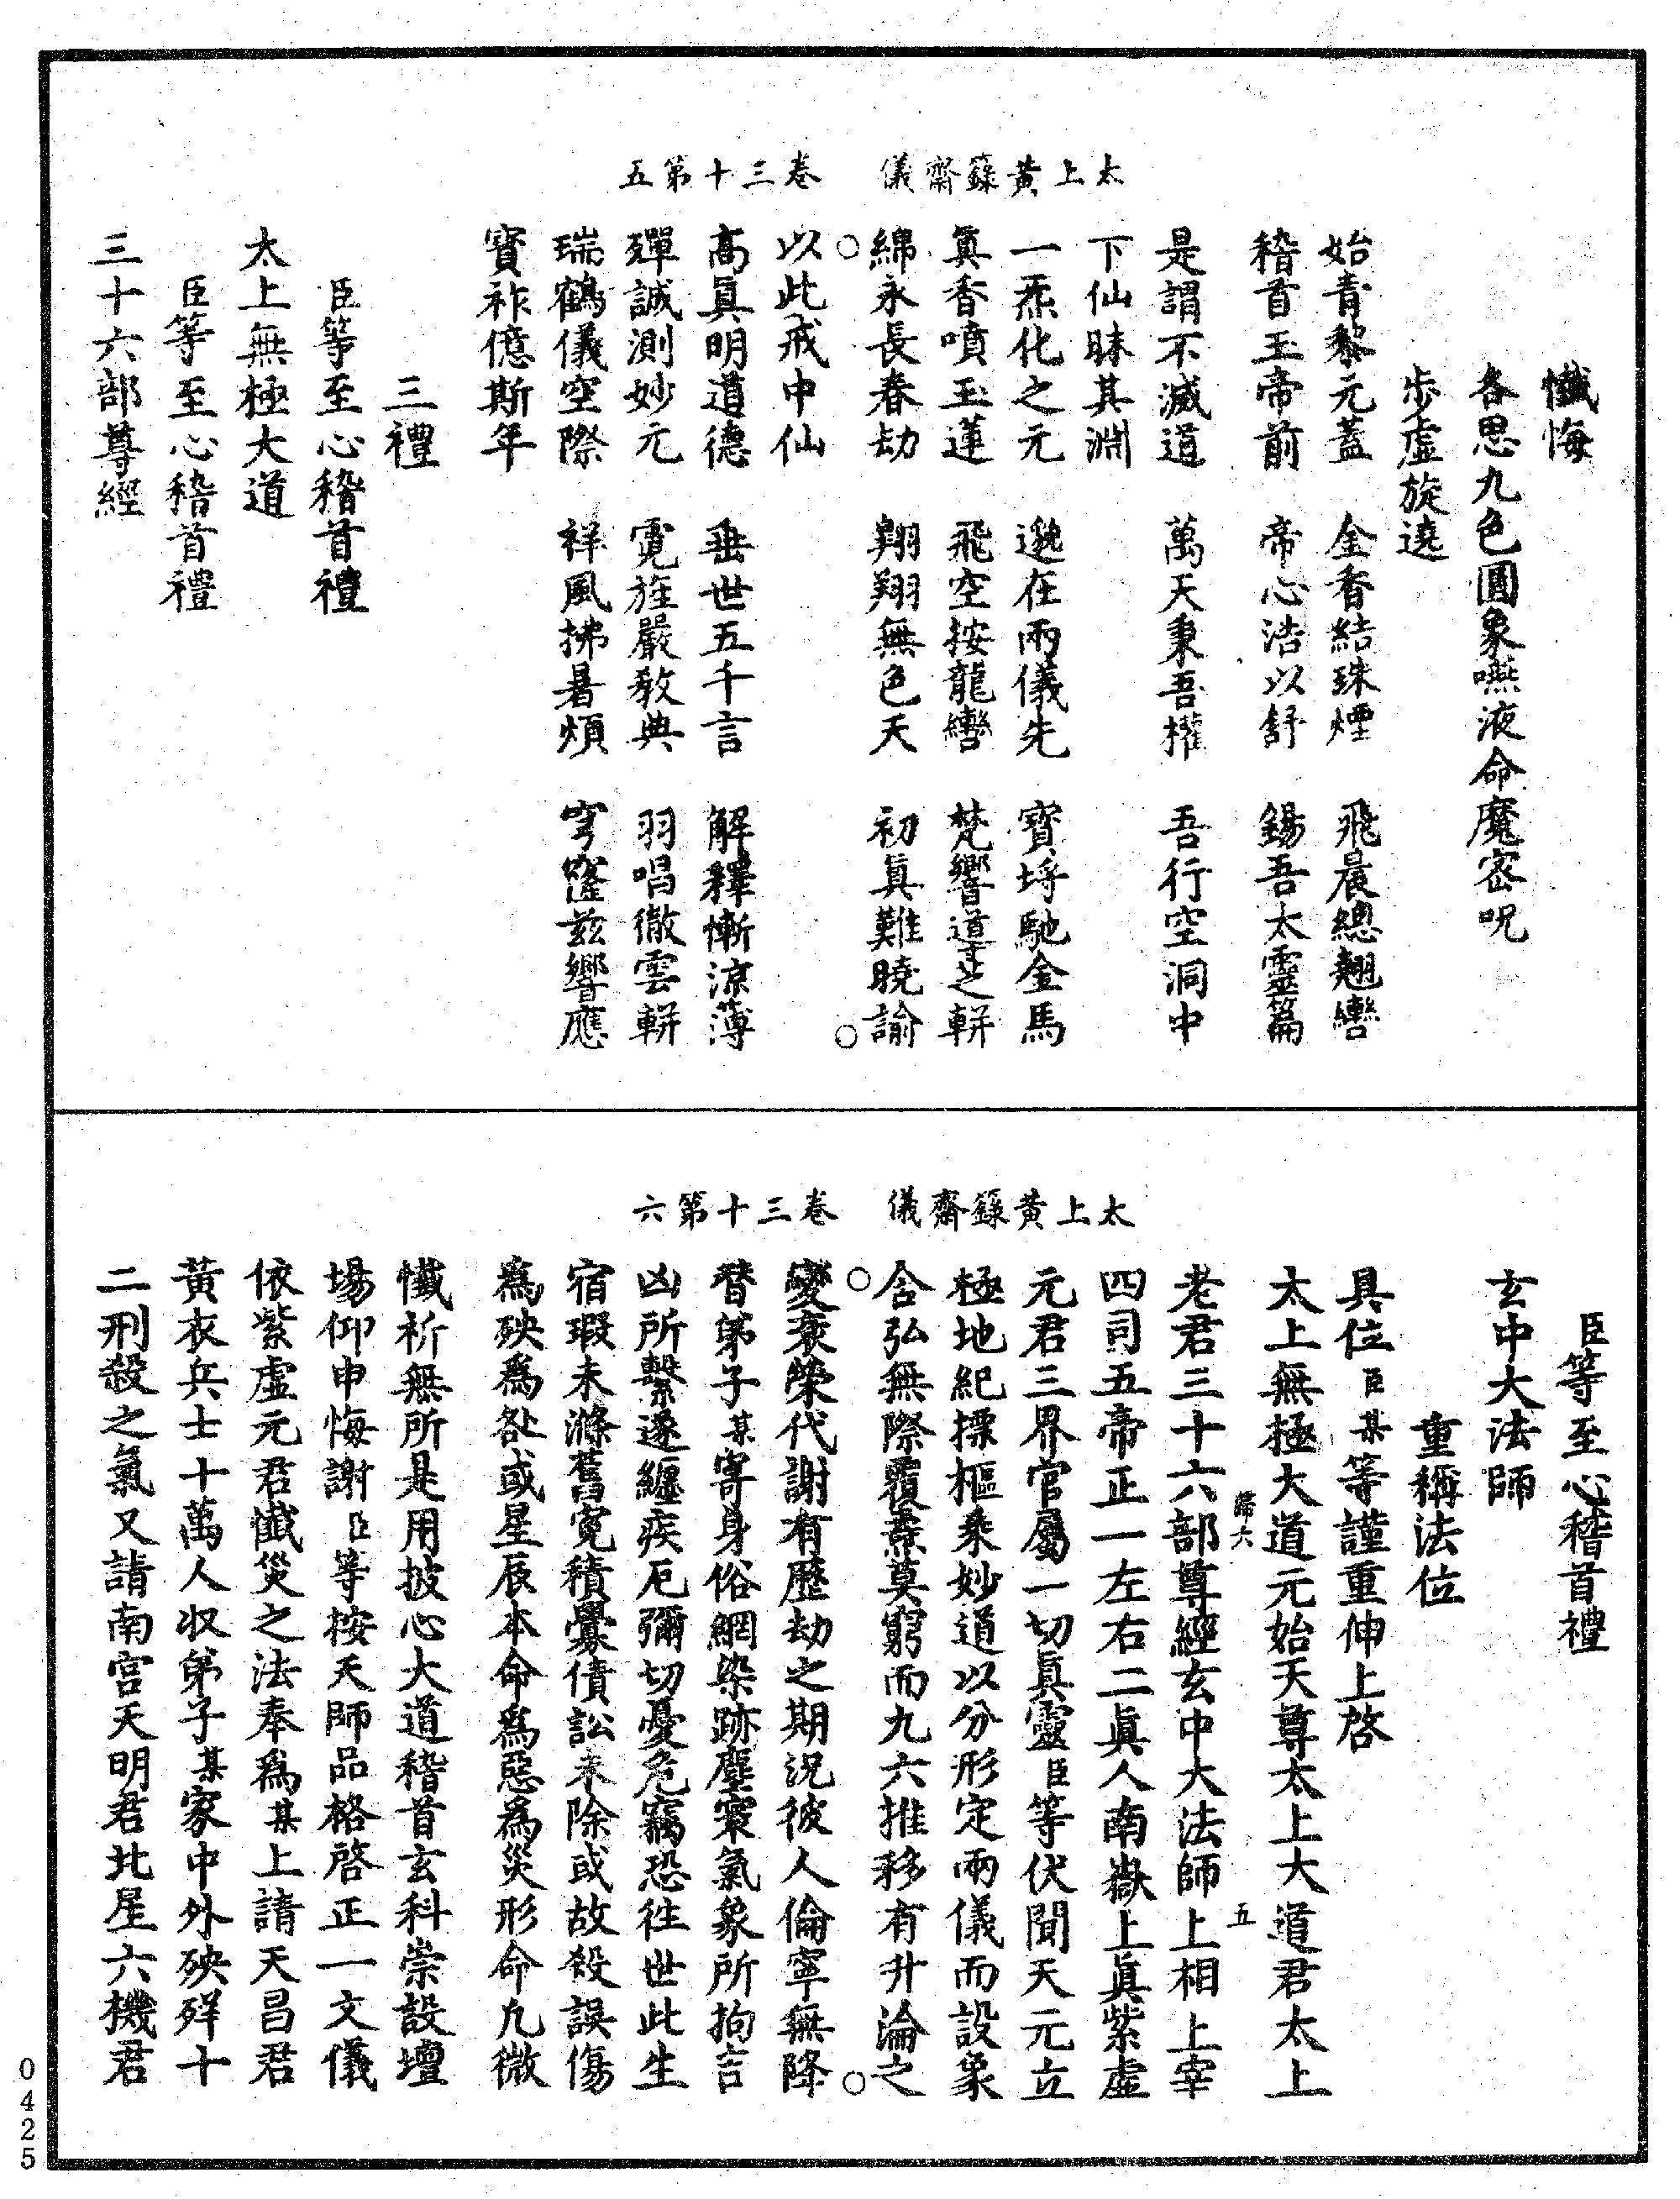 太上黃籙齋儀　卷三十第五
懺悔
各思九色圓象嚥液命魔密呪
步虛旋遶
始青黎元蓋　金香結珠煙　飛晨總翹轡
稽首玉帝前　帝心浩以舒　錫吾太靈篇
是謂不滅道　萬天秉吾權　吾行空洞中
下仙昧其淵
一炁化之元　邈在兩儀先　寶埓馳金馬
眞香噴玉蓮　飛空按龍轡　梵響導之軿
綿永長春劫　翱翔無色天　初眞難曉諭
以此戒中仙
高眞明道德　垂世五千言　解釋慚涼薄
殫誠測妙元　霓旌嚴教典　羽唱徹雲軿
瑞鶴儀空際　祥風拂暑煩　穹窿兹響應
寳祚億斯年
三禮
臣等至心稽首禮
太上無極大道
臣等至心稽首禮
三十六部尊經
太上黃籙齋儀　卷三十第六
臣等至心稽首禮
玄中大法師
重稱法位
具位臣某等謹重伸上啓
太上無極大道元始天尊太上大道君太上
老君三十六部尊經玄中大法師上相上宰
四司五帝正一左右二眞人南嶽上眞紫虛
元君三界官屬一切眞靈臣等伏聞天元立
極地紀摽樞乘妙道以分形定兩儀而設象
含弘無際覆燾莫窮而九六推移有升淪之
變衰榮代謝有歷劫之期況彼人倫寧無降
替弟子某寄身俗網染跡塵寰氣象所拘吉
凶所繫遂纏疾厄彌切憂危竊恐往世此生
宿瑕未滌舊寃積釁債訟未除或故殺誤傷
爲殃爲咎或星辰本命爲惡爲災形命凡微
懺祈無所是用披心大道稽首玄科崇設壇
場仰申悔謝臣等按天師品格啓正一文儀
依紫虛元君懺災之法奉爲某上請天昌君
黃衣兵士十萬人收弟子某家中外殃殍十
二刑殺之氣又請南宮天明君北星六機君
席六
五
0425